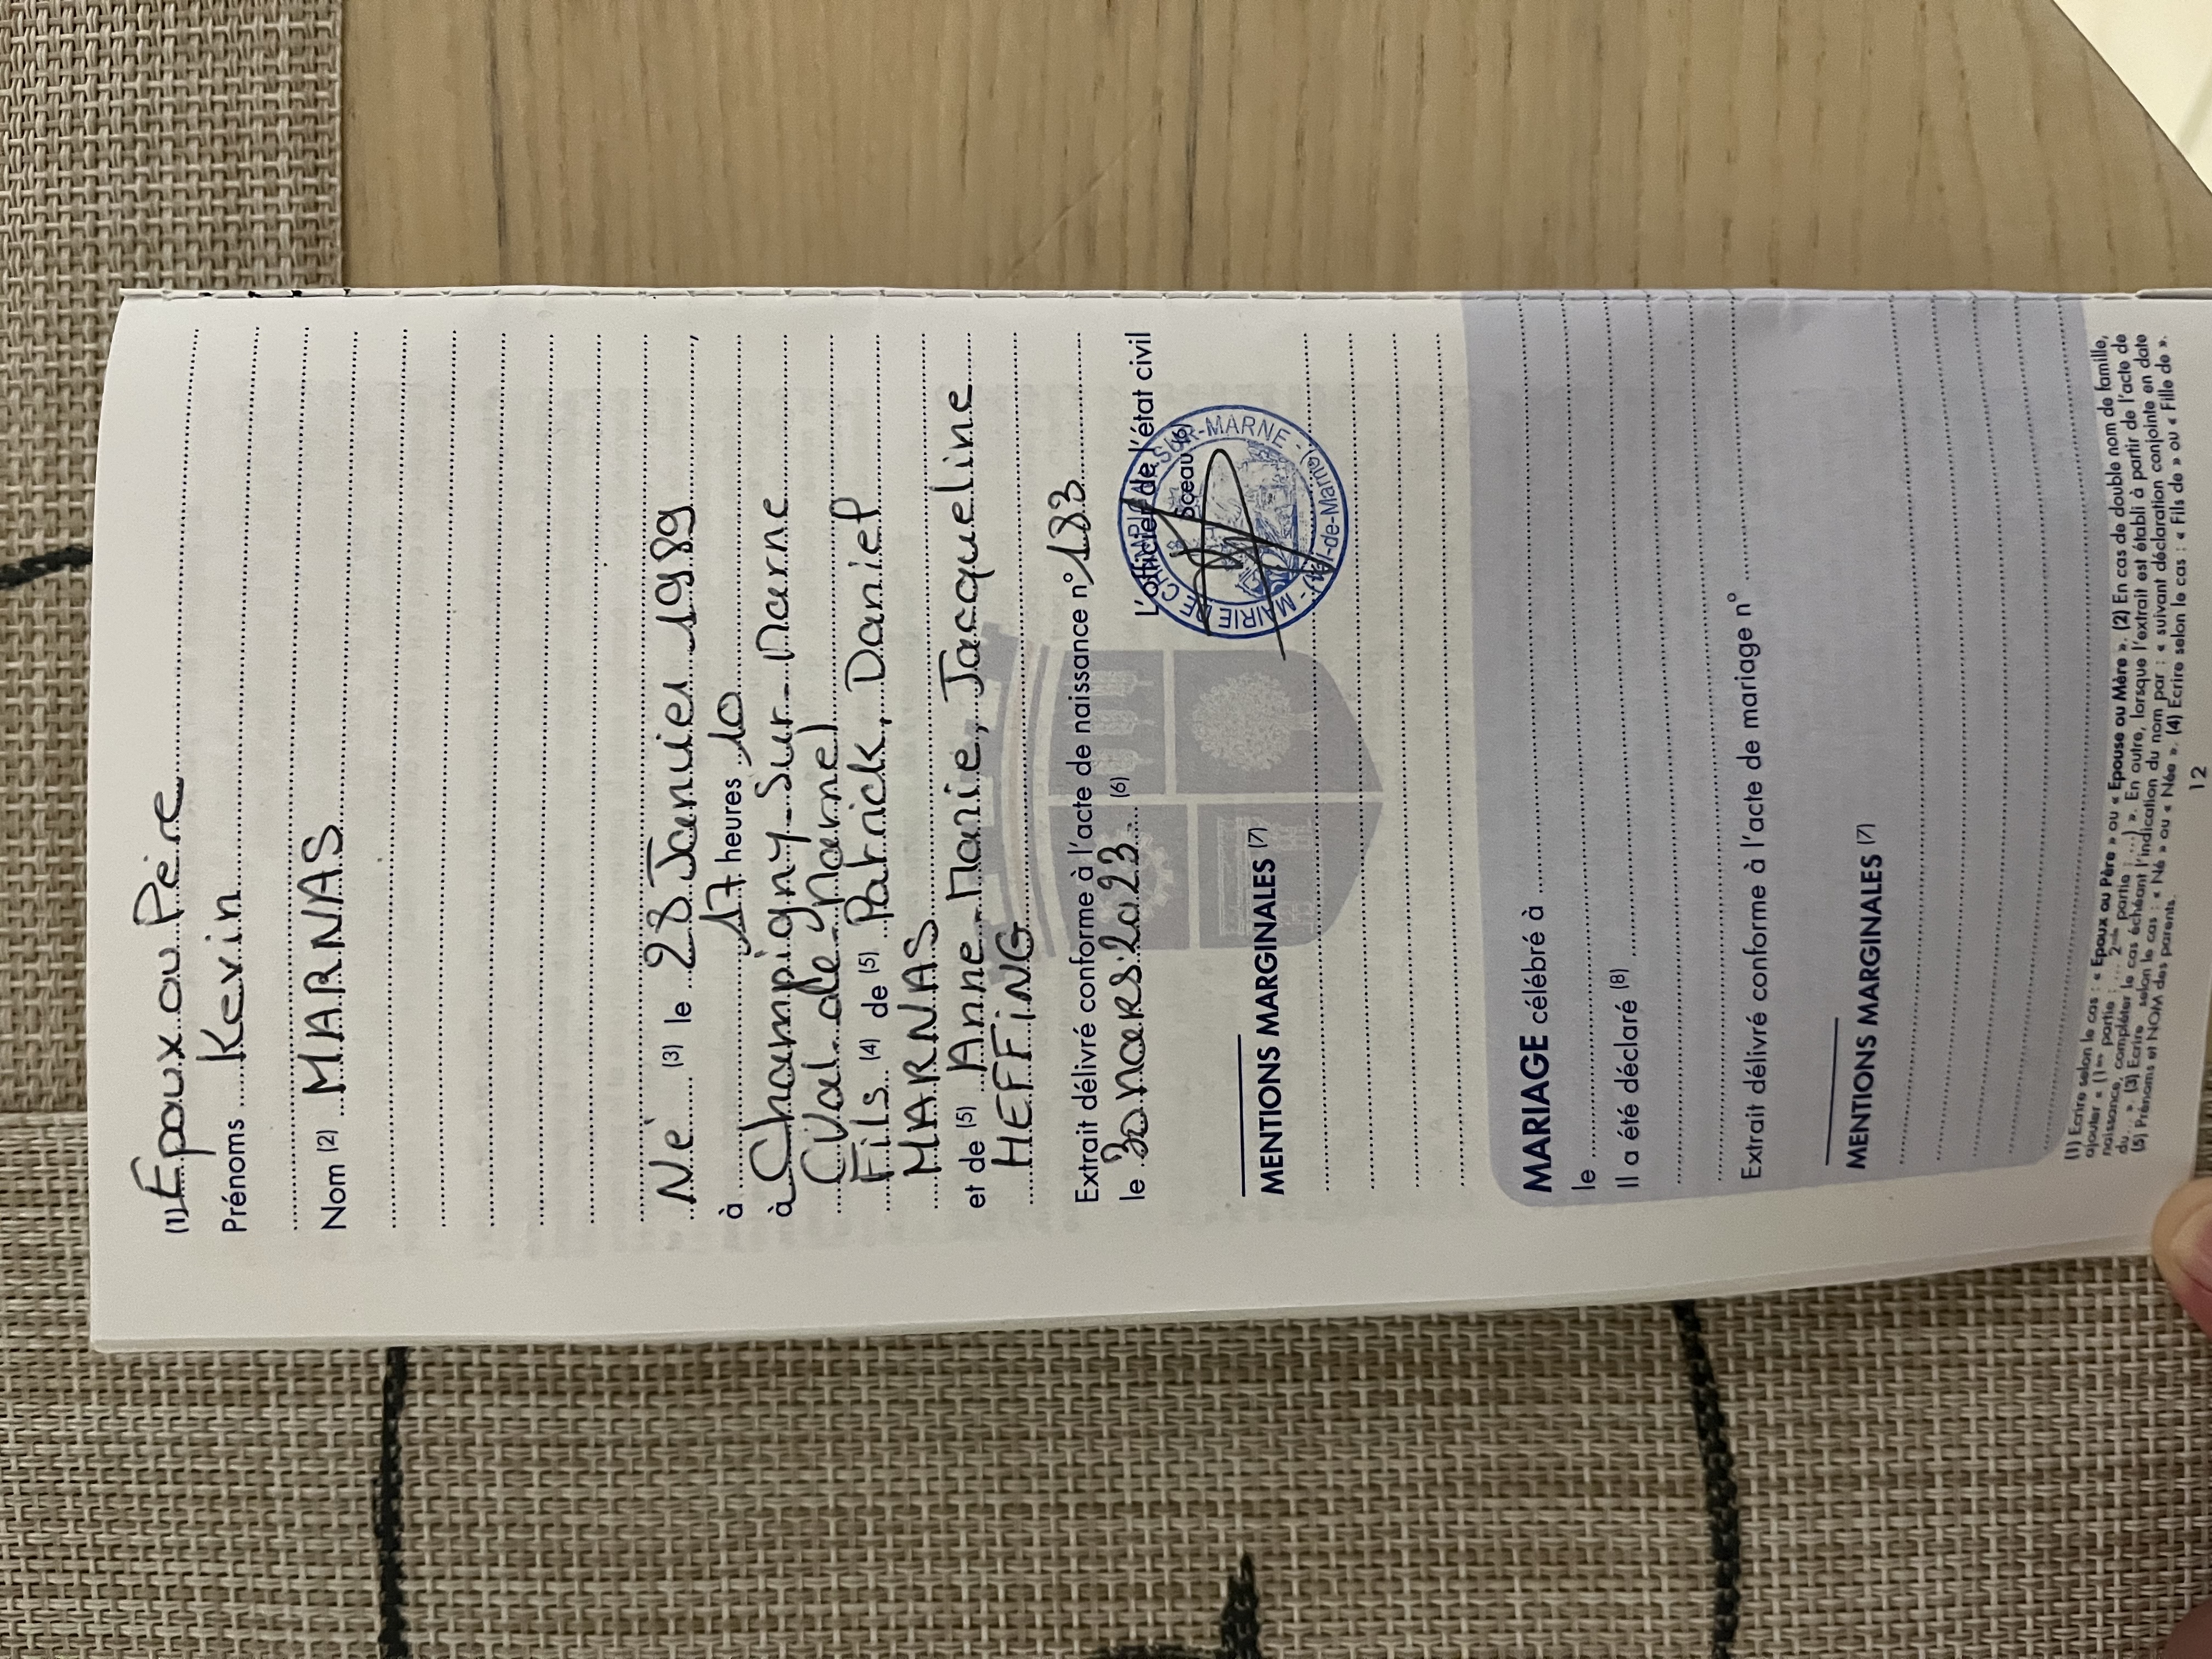 (1) Epoux ou Père
Prénoms Kevin
Nom (2) MARNAS
Né (3) le 28 Janvier 1989,
à 17 heures 10
à Champigny-Sur-Marne
(Val de Marne)
Fils (4) de (5) Patrick, Daniel
MARNAS
et de (5) Anne-Marie, Jacqueline
HEFFiNG
Extrait délivré conforme à l'acte de naissance n° 183
le 30 mars 2023 (6)
L'officier de l'état civil
Sceau (6)
MAIRIE DE SUR-MARNE - (Val-de-Marne)
MENTIONS MARGINALES (7)
MARIAGE célébré à
le
Il a été déclaré (8)
Extrait délivré conforme à l'acte de mariage n°
MENTIONS MARGINALES (7)
(1) Ecrire selon le cas : « Epoux ou Père » ou « Epouse ou Mère ». (2) En cas de double nom de famille,
ajouter « (1ère partie : ... 2nde partie : ...) ». En outre, lorsque l'extrait est établi à partir de l'acte de
naissance, compléter le cas échéant l'indication du nom par : « suivant déclaration conjointe en date
du ... ». (3) Ecrire selon le cas : « Né » ou « Née ». (4) Ecrire selon le cas : « Fils de » ou « Fille de ».
(5) Prénoms et NOM des parents.
12